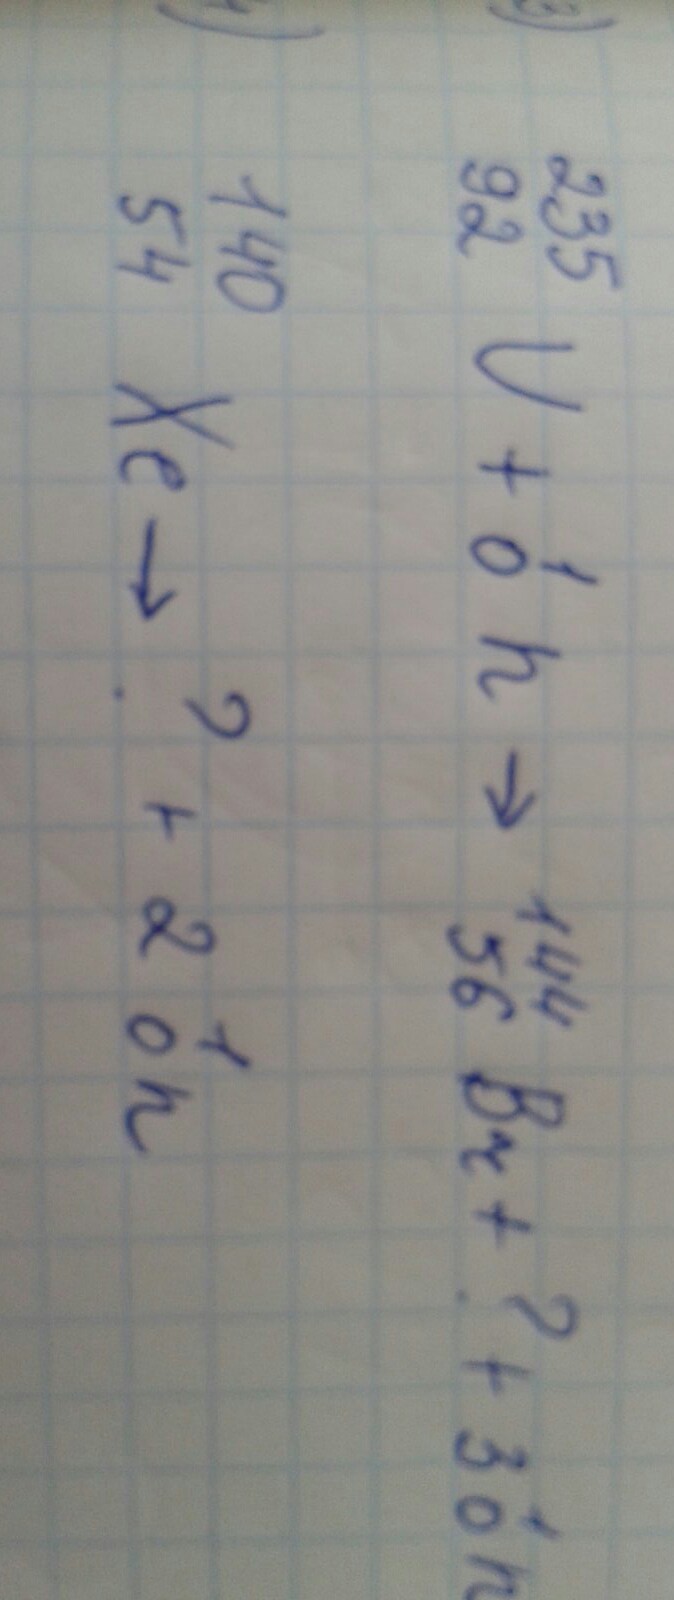 3) ²³⁵₉₂U + ¹₀n → ¹⁴⁴₅₆Br + ? + 3¹₀n
4) ¹⁴⁰₅₄Xe → ? + 2¹₀n